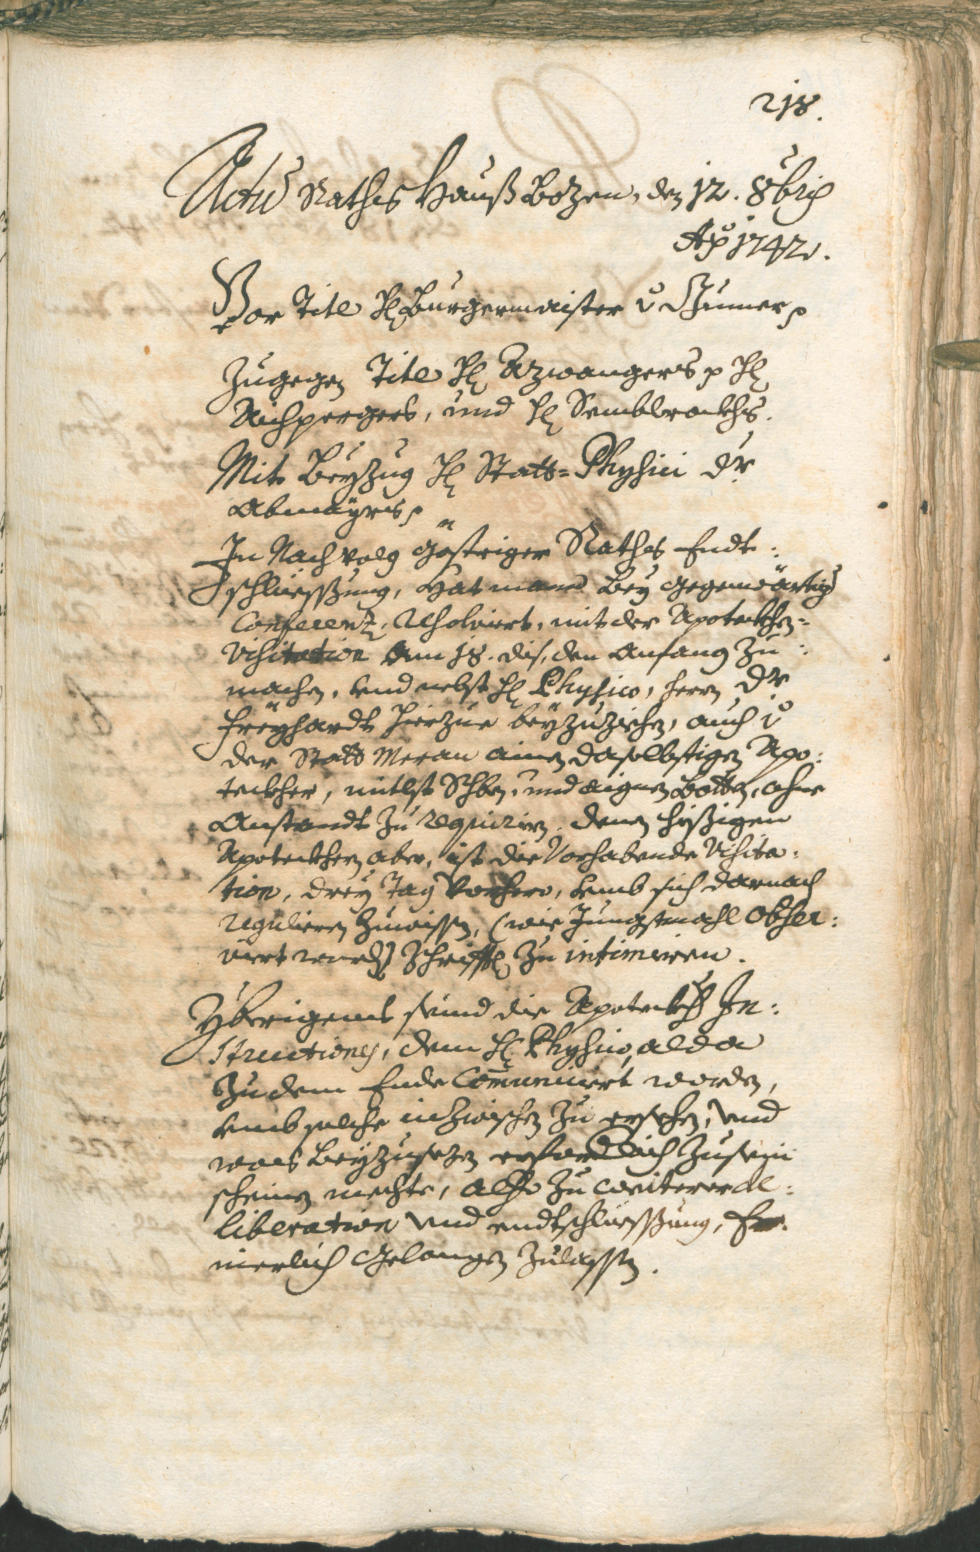 218.
Actū Rathshauß Bozen, den 12. 8bris
Aō 1742.
Vor Titl H: Burgermaister v
Zugegen Titl H: Azwangers p H:
Aichpergers, und H:
Mit Beyzug H: Statt-Physici Dr
Obmayrs p
In Nachvolg gestriger Raths Endt:
schliessung, hat mann bey gegenwärtig
Conferenz, resolviert, mit der Apoteckhen=
visitation am 18. dis, den Anfang zu
machen, und nebst H: Physico, herrn Dr
Freyhardt hierzue beyzuziehen, auch v
der Statt Meran ainen daselbstigen Apo:
teckher, mitlst Schbn, und aignen Botten, ohne
Anstandt zu requirirn. denen hießigen
Apoteckhern aber, ist die vorhabende Visita:
tion, drey Tag vorhero, umb sich darnach
regulieren zuwissen, (wie jungstmahl obser:
viert worden) schrifftl: zu intimieren.
Yberigens seind die Apoteckh: In:
structiones, dem H: Physico, alda
zu dem Ende Com̄uniciert worden,
umb solche inzwischen zu ersehen, und
was beyzusezen erforderlich zusein
scheinen mechte, also zu weiterer de:
liberation und endtschliessung,
innerlich gelangen zulassen.